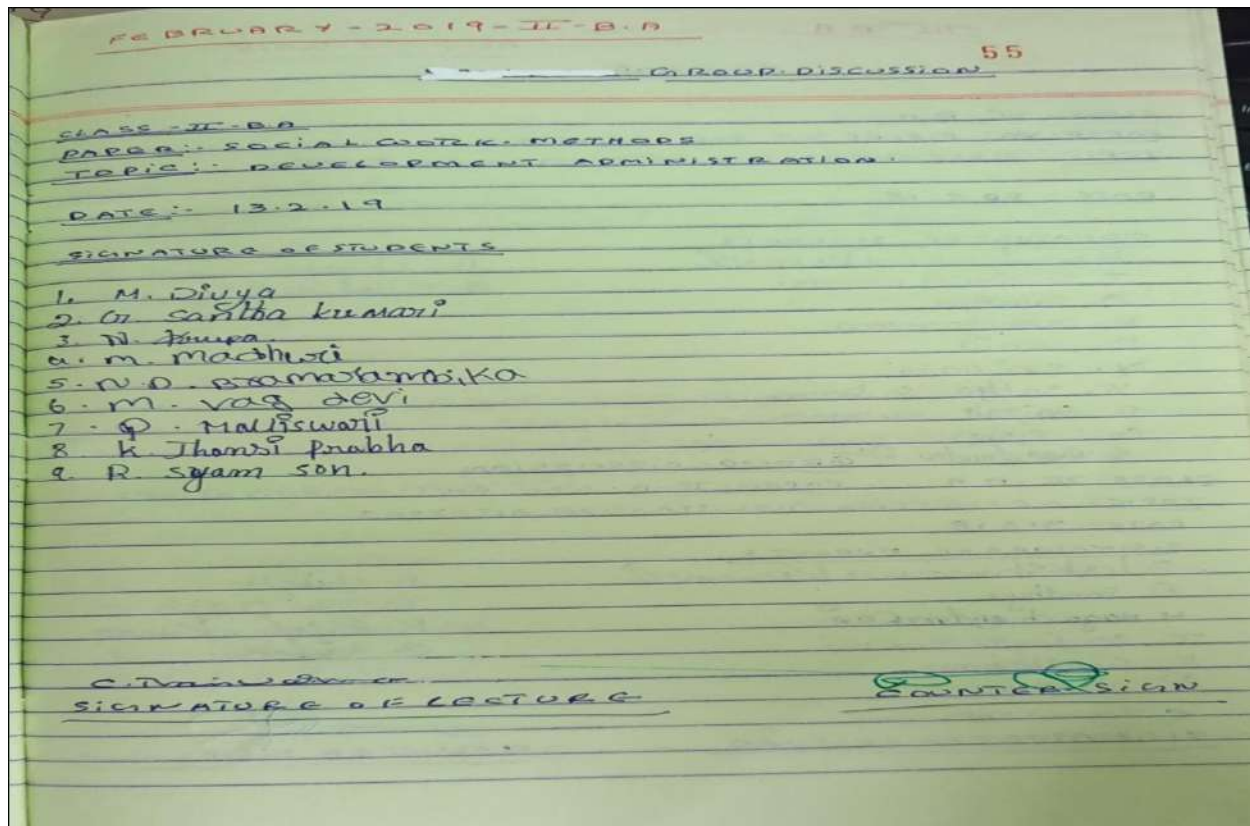 FEBRUARY - 2019 - II - B.A
55
GROUP. DISCUSSION
CLASS - II - B.A
PAPER:- SOCIAL WORK. METHODS
TOPIC:- DEVELOPMENT ADMINISTRATION.
DATE:- 13.2.19
SIGNATURE OF STUDENTS
1. M. Divya
2. G. Santha kumari
3. N.
4. M. Madhuri
5. N.D. Bramarambika
6. M. vag devi
7. P. Malliswari
8. K. Jhansi Prabha
9. R. syam son.
C.
SIGNATURE OF LECTURE
COUNTER SIGN